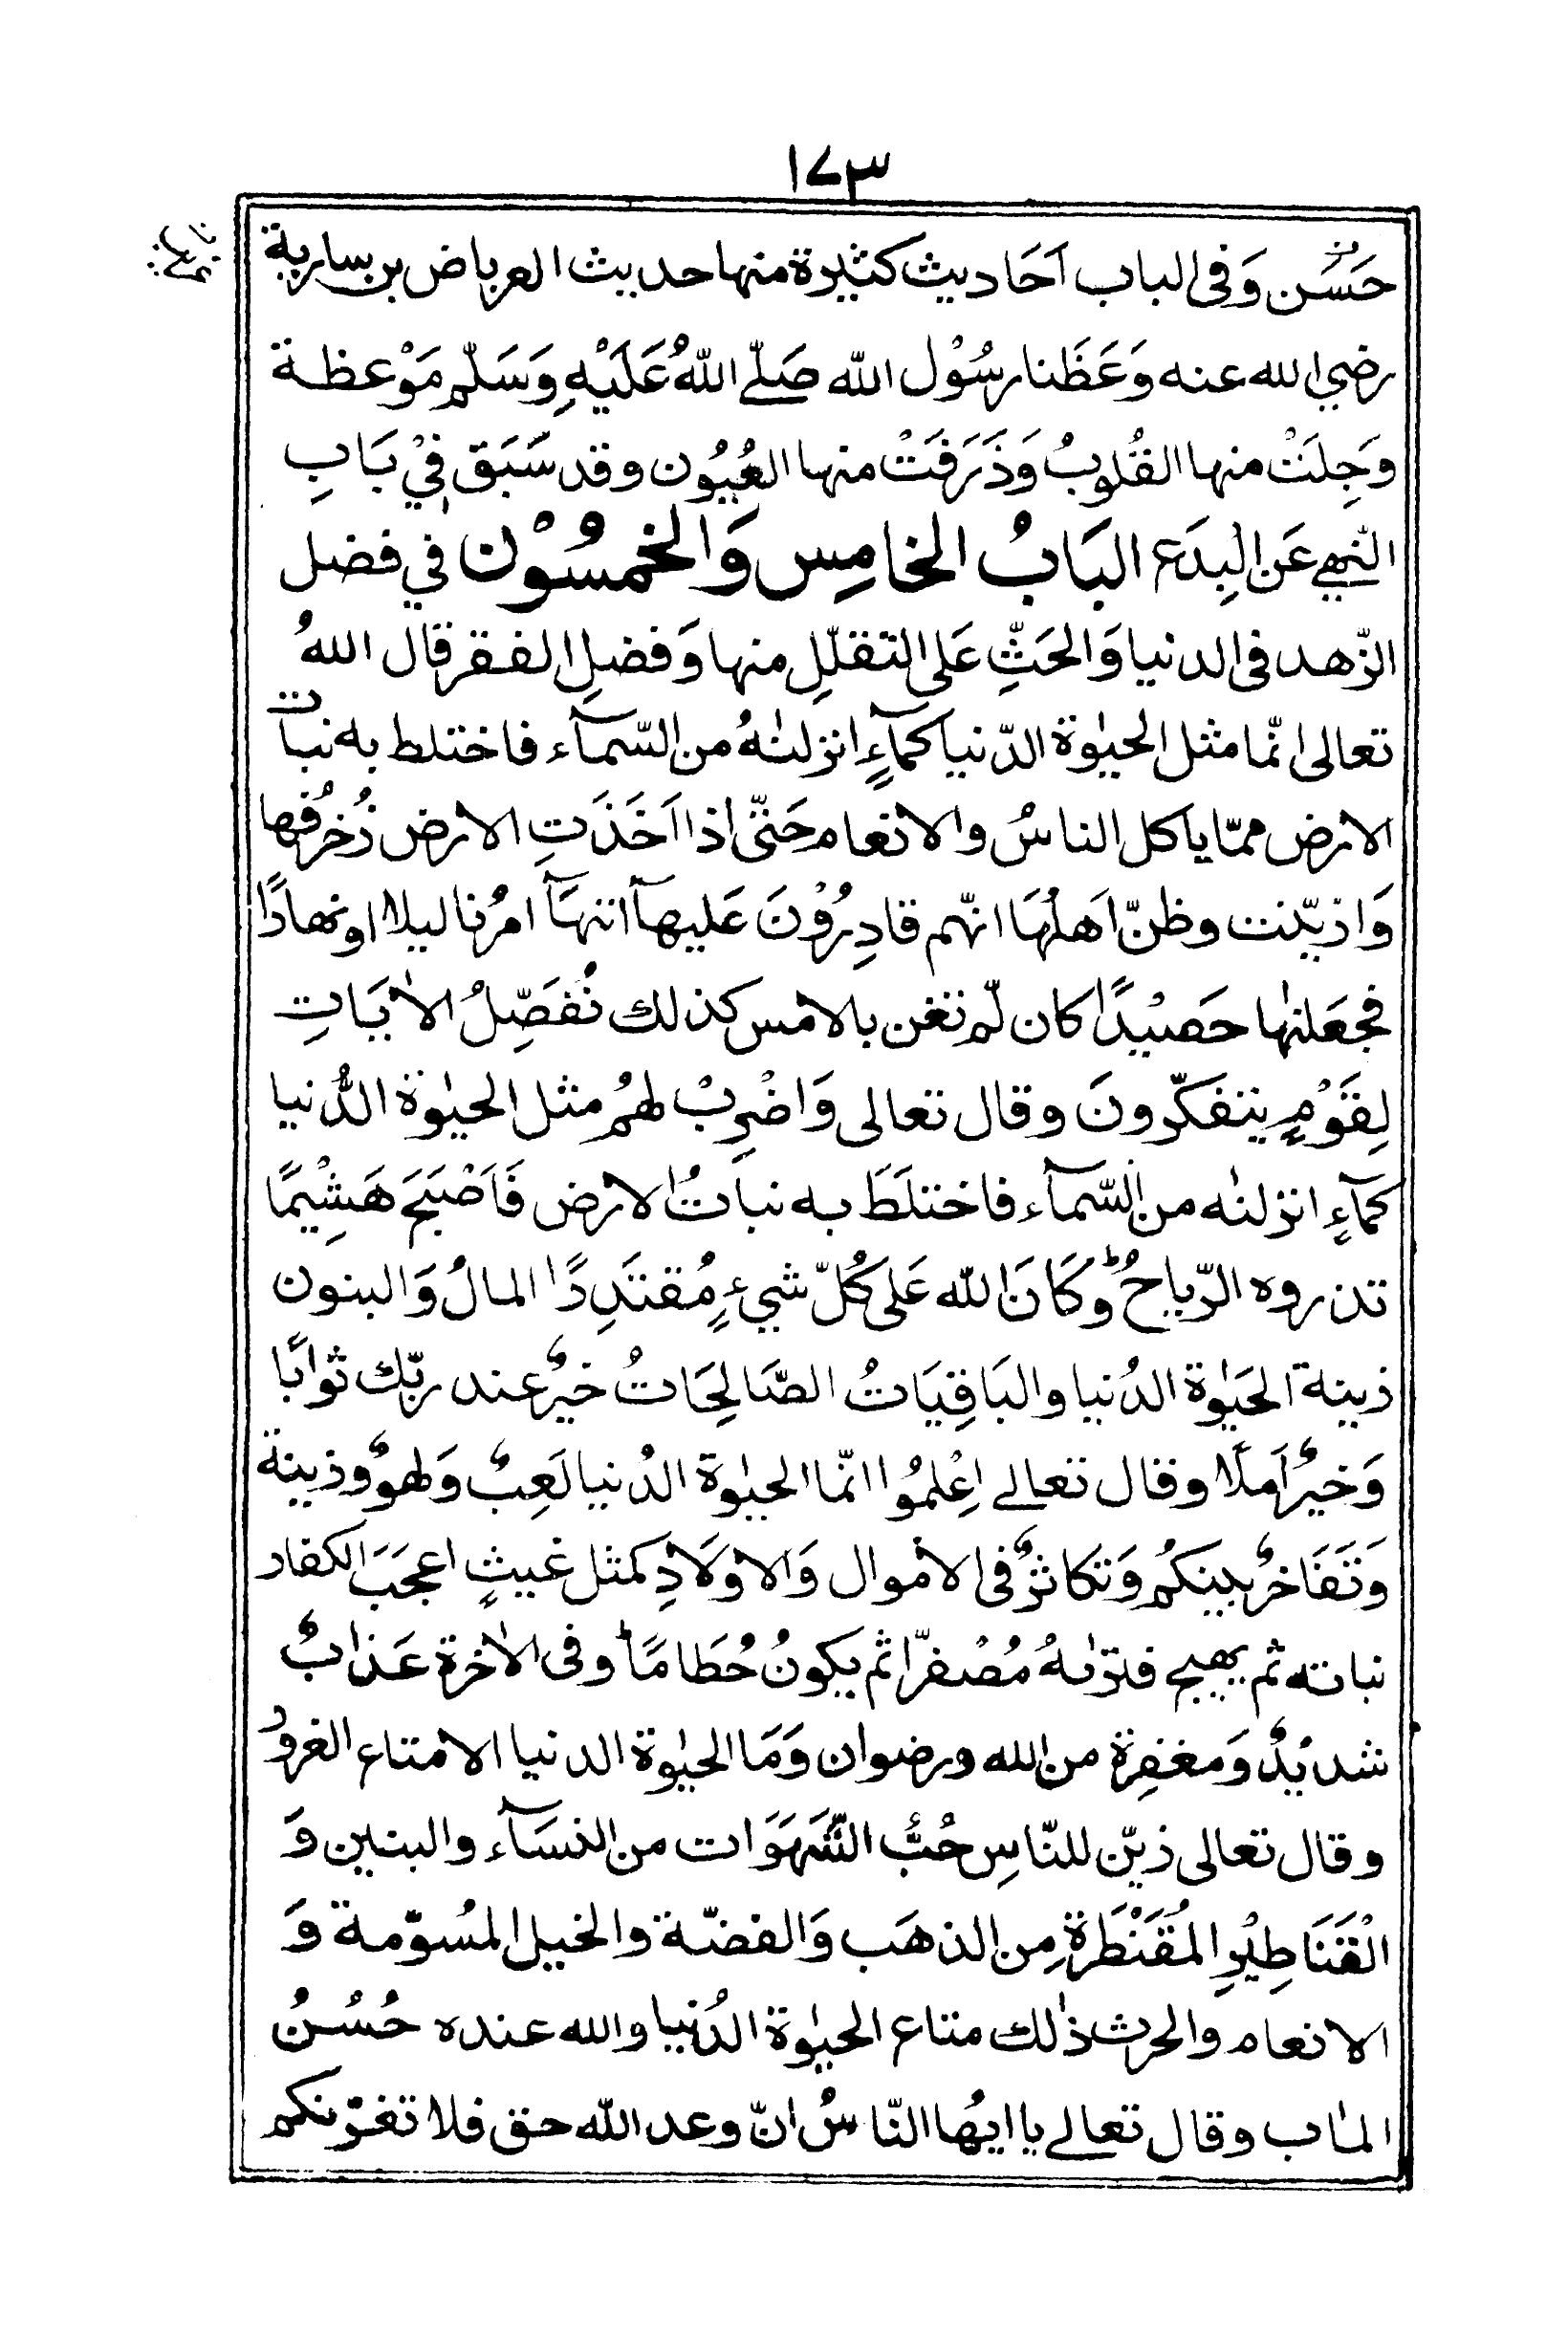 ١٧٣
حَسَن وَفى الباب اَحَاديث كثيرة منها حديث العرباض بن سارية
رضي الله عنه وَعَظَنا رسُوْل الله صَلّے اللهُ عَلَيْهِ وَسَلّم مَوْعظة
وَجِلَتْ منها القُلوبُ وَذَرَفَتْ منها العُيُون وقد سَبَق فِيْ بَابِ
النّهي عَن البِدَع البَابُ الخامِس وَالخمسُوْن في فضل
الزّهد فى الدنيا وَالحَثِّ عَلى التقلّلِ منها وَفضلِ الفقر قال اللهُ
تعالى انّما مثل الحيٰوة الدّنيا كمآءٍ انزلنٰهُ من السّمآء فاختلط به نبات
الارض ممّا ياكل الناسُ والانعام حَتّى اذا اَخَذَتِ الارض زُخرُفها
وَازيّنت وظنّ اَهلُهَا انّهم قادِرُوْنَ عَليهآ اتٰهَآ امرُنا ليلا اونهارًا
فجعَلنٰها حَصيْدًا كان لّم تغن بالامس كذلك نُفَصِّلُ الاٰيَاتِ
لِقَوْمٍ يتفكّرونَ وقال تعالى وَاضْرِبْ لهُم مثل الحيٰوة الدُّنيا
كمآءٍ انزلنٰه من السّمآء فاختلَطَ به نباتُ الارض فَاَصْبَحَ هَشِيْمًا
تذروه الرّياحُ ؕ وَكَانَ الله عَلى كُلّ شيءٍ مُقتَدِرًا المالُ وَالبنون
زينة الحَيٰوة الدُنيا والبَاقِيَاتُ الصَّالِحَاتُ خيرٌ عند ربّك ثوابًا
وَخيرٌ اَملًا وقال تعالے اِعْلمُوا انّما الحيٰوة الدُنيا لَعِبٌ وَلهوٌ وزينة
وَتَفَاخرٌ بينكُم وَتكاثرٌ فى الاموال وَالاوَلادِ كمثل غيثٍ اعجَبَ الكفار
نباته ثم يهيج فترٰىهُ مُصْفرّا ثم يكونُ حُطَامًا ؕ وفى الاٰخرة عَذابٌ
شديْدٌ وَمغفِرة من الله ورضوان وَمَا الحيٰوة الدنيا الامتاع الغرور
وقال تعالى زيّن للنّاسِ حُبُّ الشَّهَوَات من النسَآء والبنين وَ
الْقَنَاطِيْرِ المُقَنْطَرةِ مِن الذهَب وَالفضّة والخيل المسُوّمة وَ
الانعام والحرث ذٰلك متاع الحيٰوة الدُنيا والله عنده حُسْنُ
المٰاب وقال تعالے يا ايُها النّاسُ انّ وعد الله حق فلا تغرّنكم